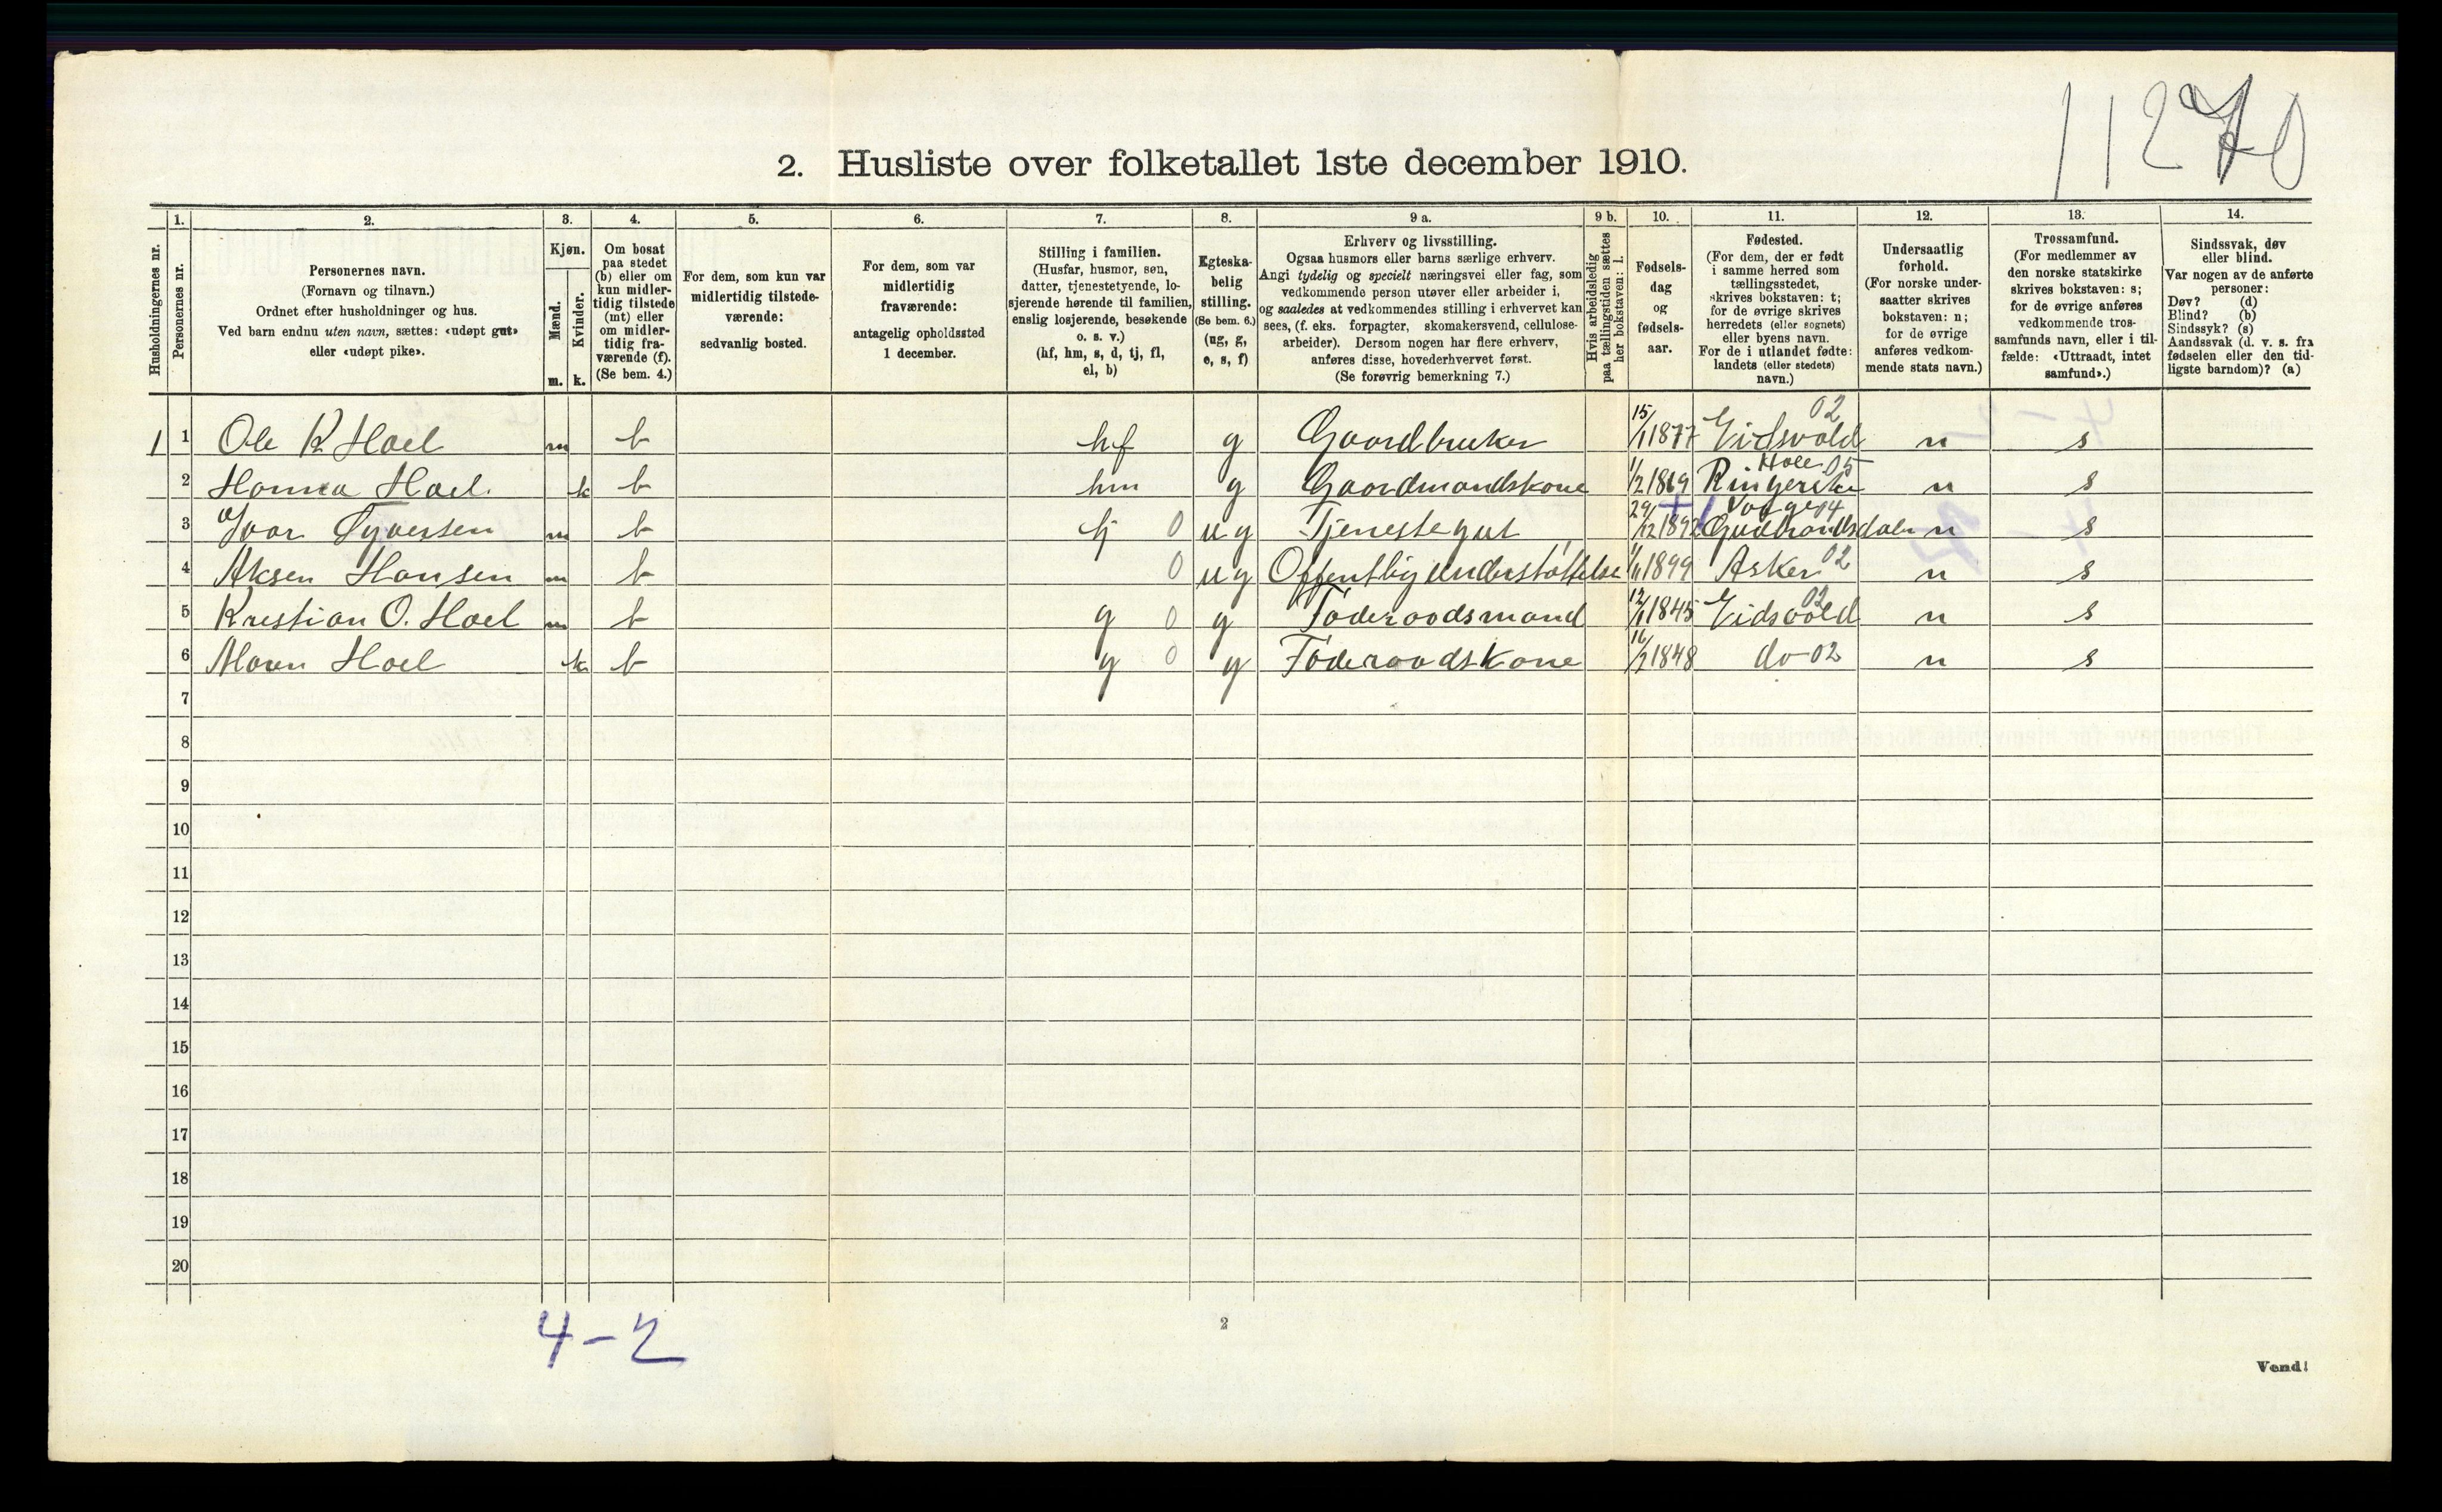 11270
2. Husliste over folketallet 1ste december 1910.
Husholdningernes nr.
1.
Personernes nr.
2.
Personernes navn.
(Fornavn og tilnavn.)
Ordnet efter husholdninger og hus.
Ved barn endnu uten navn, sættes: «udøpt gut»
eller «udøpt pike».
3.
Kjøn.
Mænd.
Kvinder.
m. k.
4.
Om bosat
paa stedet
(b) eller om
kun midler-
tidig tilstede
(mt) eller
om midler-
tidig fra-
værende (f).
(Se bem. 4.)
5.
For dem, som kun var
midlertidig tilstede-
værende:
sedvanlig bosted.
6.
For dem, som var
midlertidig
fraværende:
antagelig opholdssted
1 december.
7.
Stilling i familien.
(Husfar, husmor, søn,
datter, tjenestetyende, lo-
sjerende hørende til familien,
enslig losjerende, besøkende
o. s. v.)
(hf, hm, s, d, tj, fl,
el, b)
8.
Egteska-
belig
stilling.
(Se bem. 6.)
(ug, g,
e, s, f)
9 a.
Erhverv og livsstilling.
Ogsaa husmors eller barns særlige erhverv.
Angi tydelig og specielt næringsvei eller fag, som
vedkommende person utøver eller arbeider i,
og saaledes at vedkommendes stilling i erhvervet kan
sees, (f. eks. forpagter, skomakersvend, cellulose-
arbeider). Dersom nogen har flere erhverv,
anføres disse, hovederhvervet først.
(Se forøvrig bemerkning 7.)
9 b.
Hvis arbeidsledig
paa tællingstiden sættes
her bokstaven: l.
10.
Fødsels-
dag
og
fødsels-
aar.
11.
Fødested.
(For dem, der er født
i samme herred som
tællingsstedet,
skrives bokstaven: t;
for de øvrige skrives
herredets (eller sognets)
eller byens navn.
For de i utlandet fødte:
landets (eller stedets)
navn.)
12.
Undersaatlig
forhold.
(For norske under-
saatter skrives
bokstaven: n;
for de øvrige
anføres vedkom-
mende stats navn.)
13.
Trossamfund.
(For medlemmer av
den norske statskirke
skrives bokstaven: s;
for de øvrige anføres
vedkommende tros-
samfunds navn, eller i til-
fælde: «Uttraadt, intet
samfund».)
14.
Sindssvak, døv
eller blind.
Var nogen av de anførte
personer:
Døv? (d)
Blind? (b)
Sindssyk? (s)
Aandssvak (d. v. s. fra
fødselen eller den tid-
ligste barndom)? (a)
1 1 Ole K Hoel m b hf g Gaardbruker 15/1 1877 Eidsvold 02 n s
2 Hanna Hoel. k b hm g Gaardmandskone 1/2 1869 Hole 05 Ringerike n s
3 Ivar Syversen m b tj 0 ug Tjenestegut 29/12 1892 Vaage 04 Gudbrandsdalen n s
4 Aksen Hansen m b 0 ug Offentlig understøttelse 1/11 1899 Asker 02 n s
5 Kristian O. Hoel m b g 0 g Føderaadsmand 12/11 1845 Eidsvold 02 n s
6 Maren Hoel k b g 0 g Føderaadskone 16/2 1848 do 02 n s
7
8
9
10
11
12
13
14
15
16
17
18
19
20
4-2
2
Vend!